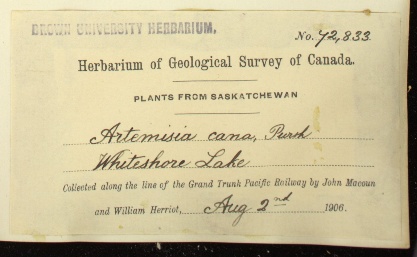 BROWN UNIVERSITY HERBARIUM.
No. 72,833
Herbarium of Geological Survey of Canada.
PLANTS FROM SASKATCHEWAN
Artemisia cana, Pursh
Whiteshore Lake
Collected along the line of the Grand Trunk Pacific Railway by John Macoun
and William Herriot, Aug 2nd 1906.